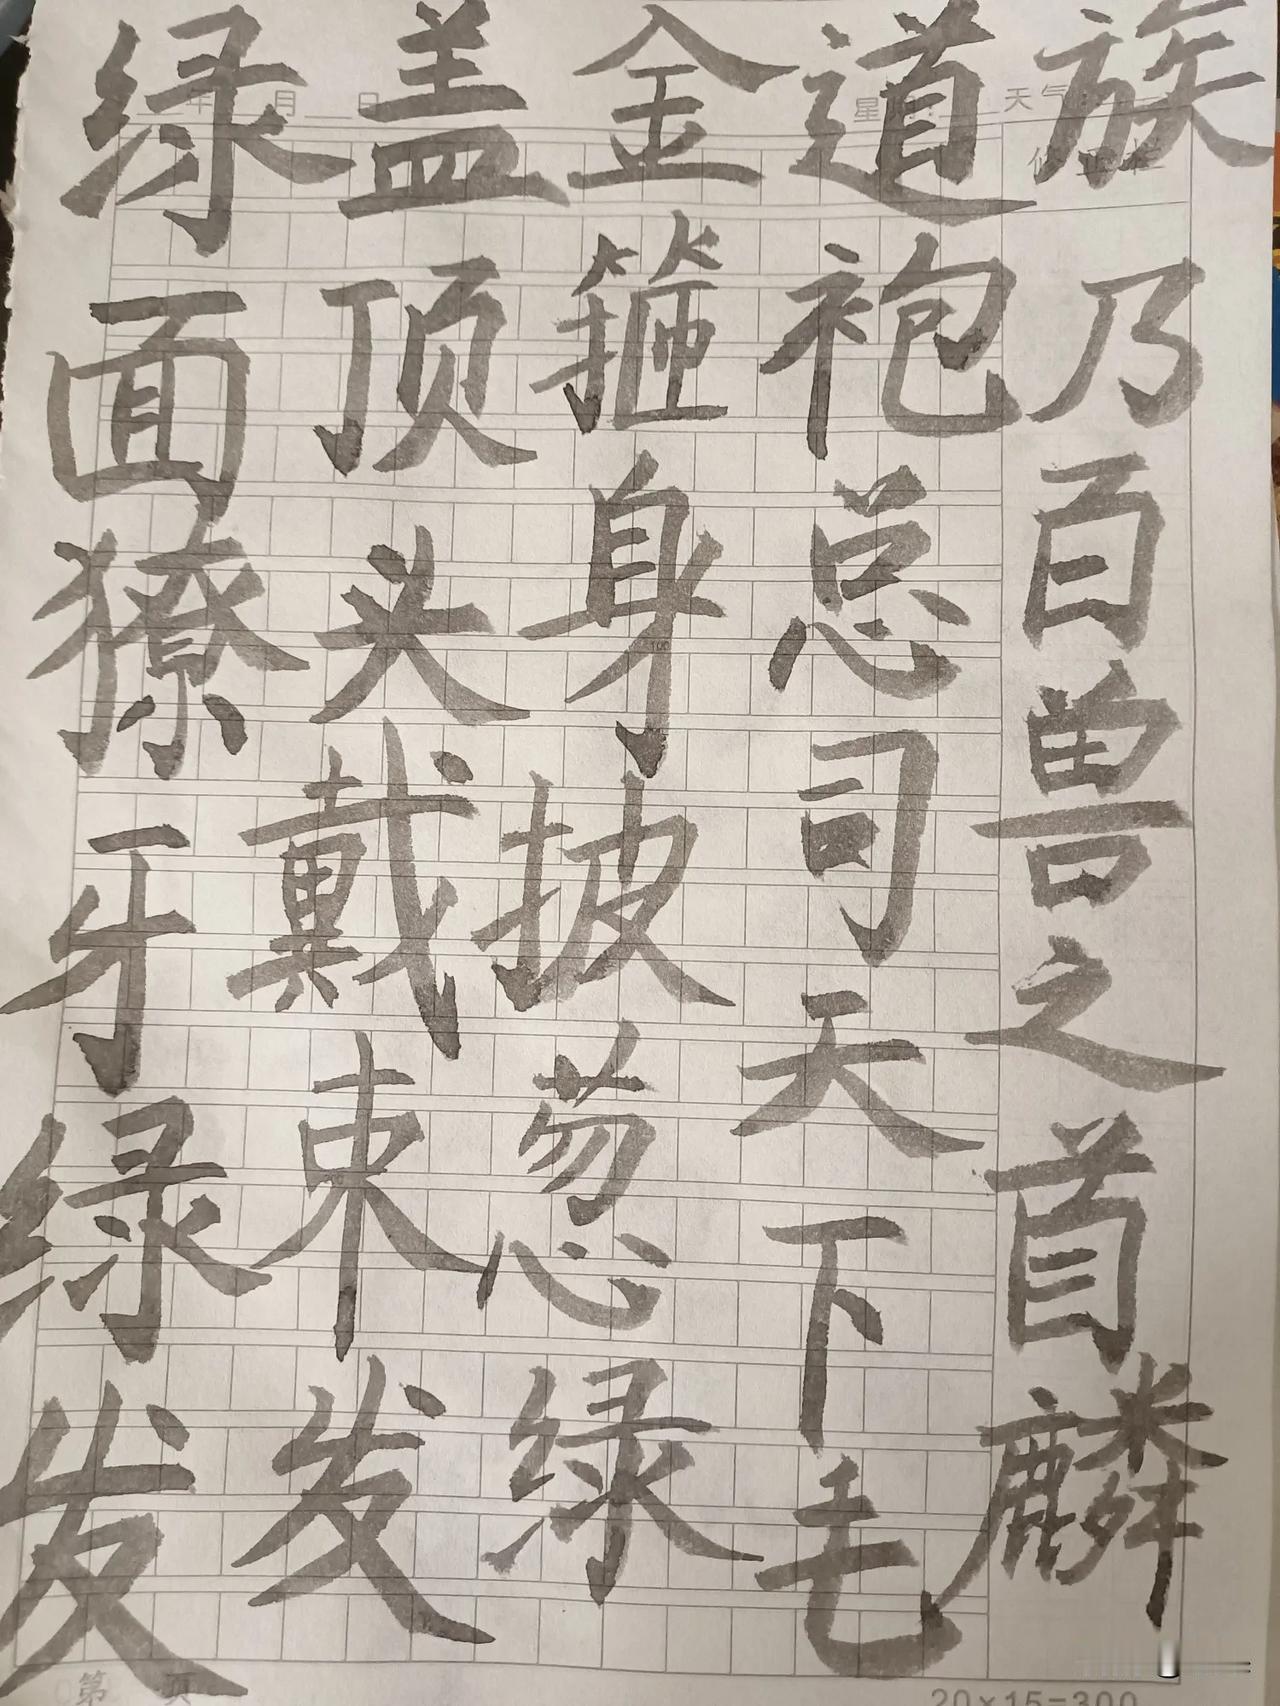 年 月 日 星 天气
绿面獠牙绿发
盖顶头戴束发
金箍身披葱绿
道袍总司天下毛
族乃百兽之首麟
100
第 页
20×15=300